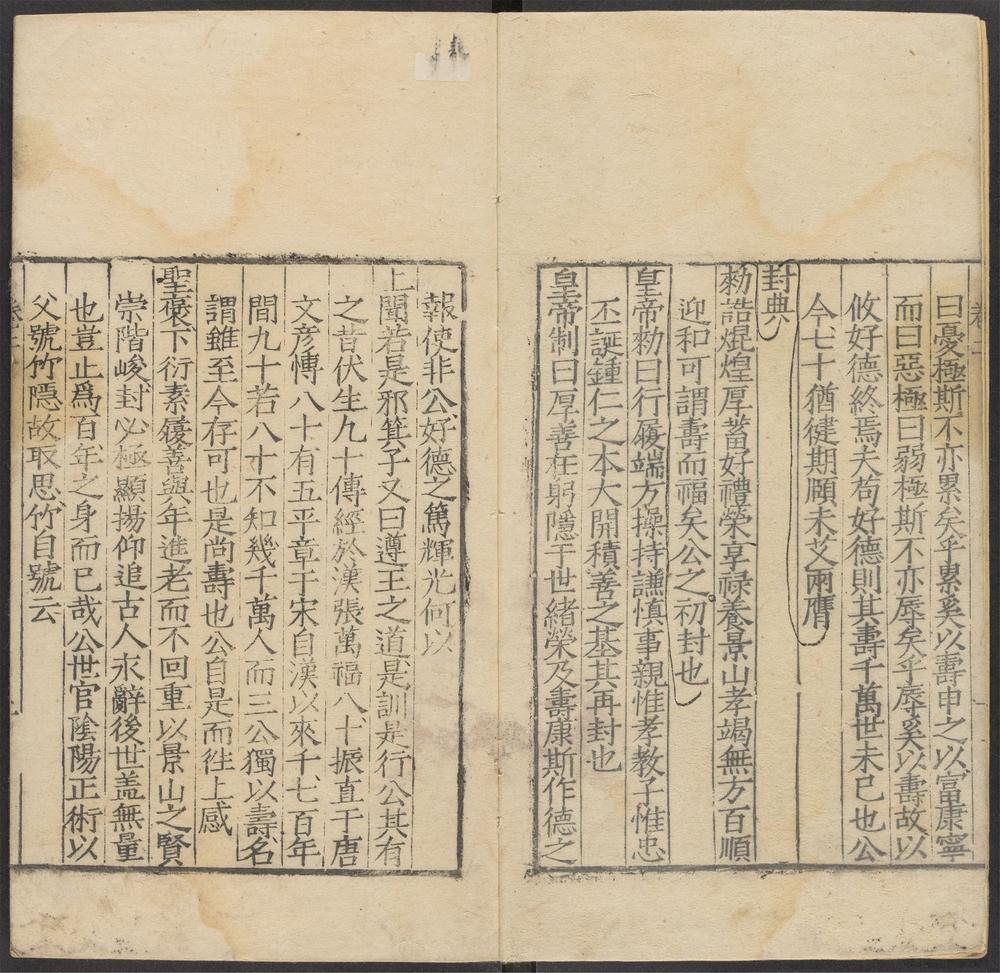 曰憂極斯不亦累矣乎累奚以壽申之以富康寧
而曰惡極曰弱極斯不亦辱矣乎辱奚以壽故以
攸好德終焉夫苟好德則其壽千萬世未已也公
今七十猶健期頤未艾兩膺
封典
勑誥焜煌厚蓄好禮榮享祿養景山孝竭無方百順
迎和可謂壽而福矣公之初封也
皇帝勑曰行履端方操持謙慎事親惟孝教子惟忠
丕誕鍾仁之本大開積善之基其再封也
皇帝制曰厚善在躬隱于世緒榮及壽康斯作德之
報使非公好德之篤輝光何以
上聞若是邪箕子又曰遵王之道是訓是行公其有
之昔伏生九十傳經於漢張萬福八十振直于唐
文彥愽八十有五平章于宋自漢以來千七百年
間九十若八十不知幾千萬人而三公獨以壽名
謂雖至今存可也是尚壽也公自是而徃上感
聖褒下衍素履善與年進老而不回重以景山之賢
崇階峻封必極顯揚仰追古人永辭後世盖無量
也豈止爲百年之身而已哉公世官陰陽正術以
父號竹隱故取思竹自號云